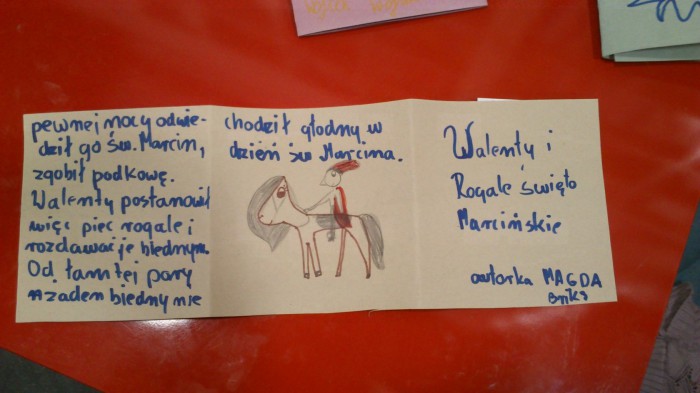 pewnej nocy odwie-
dził go św. Marcin,
zgobił podkowę.
Walenty postanowił
więc piec rogale i
rozdawać je biednym.
Od tamtej pory
żaden biedny nie
chodził głodny w
dzień św Marcina.
Walenty i
Rogale święto
Marcińskie
autorka MAGDA